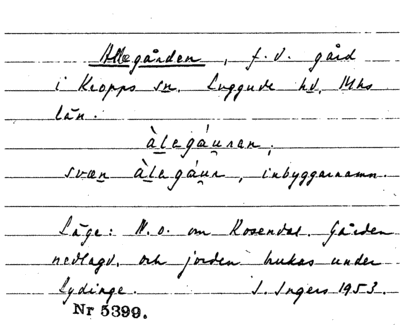 Allegården, f.d. gård
i Kropps sn. Luggude hd, Mhs
län.
àlegáuran,
svæn àlegáur, inbyggarnamn.
Läge: N.o. om Rosendal. Gården
nedlagd, och jorden brukas under
Lydinge. I. Ingers 1953.
Nr 5399.